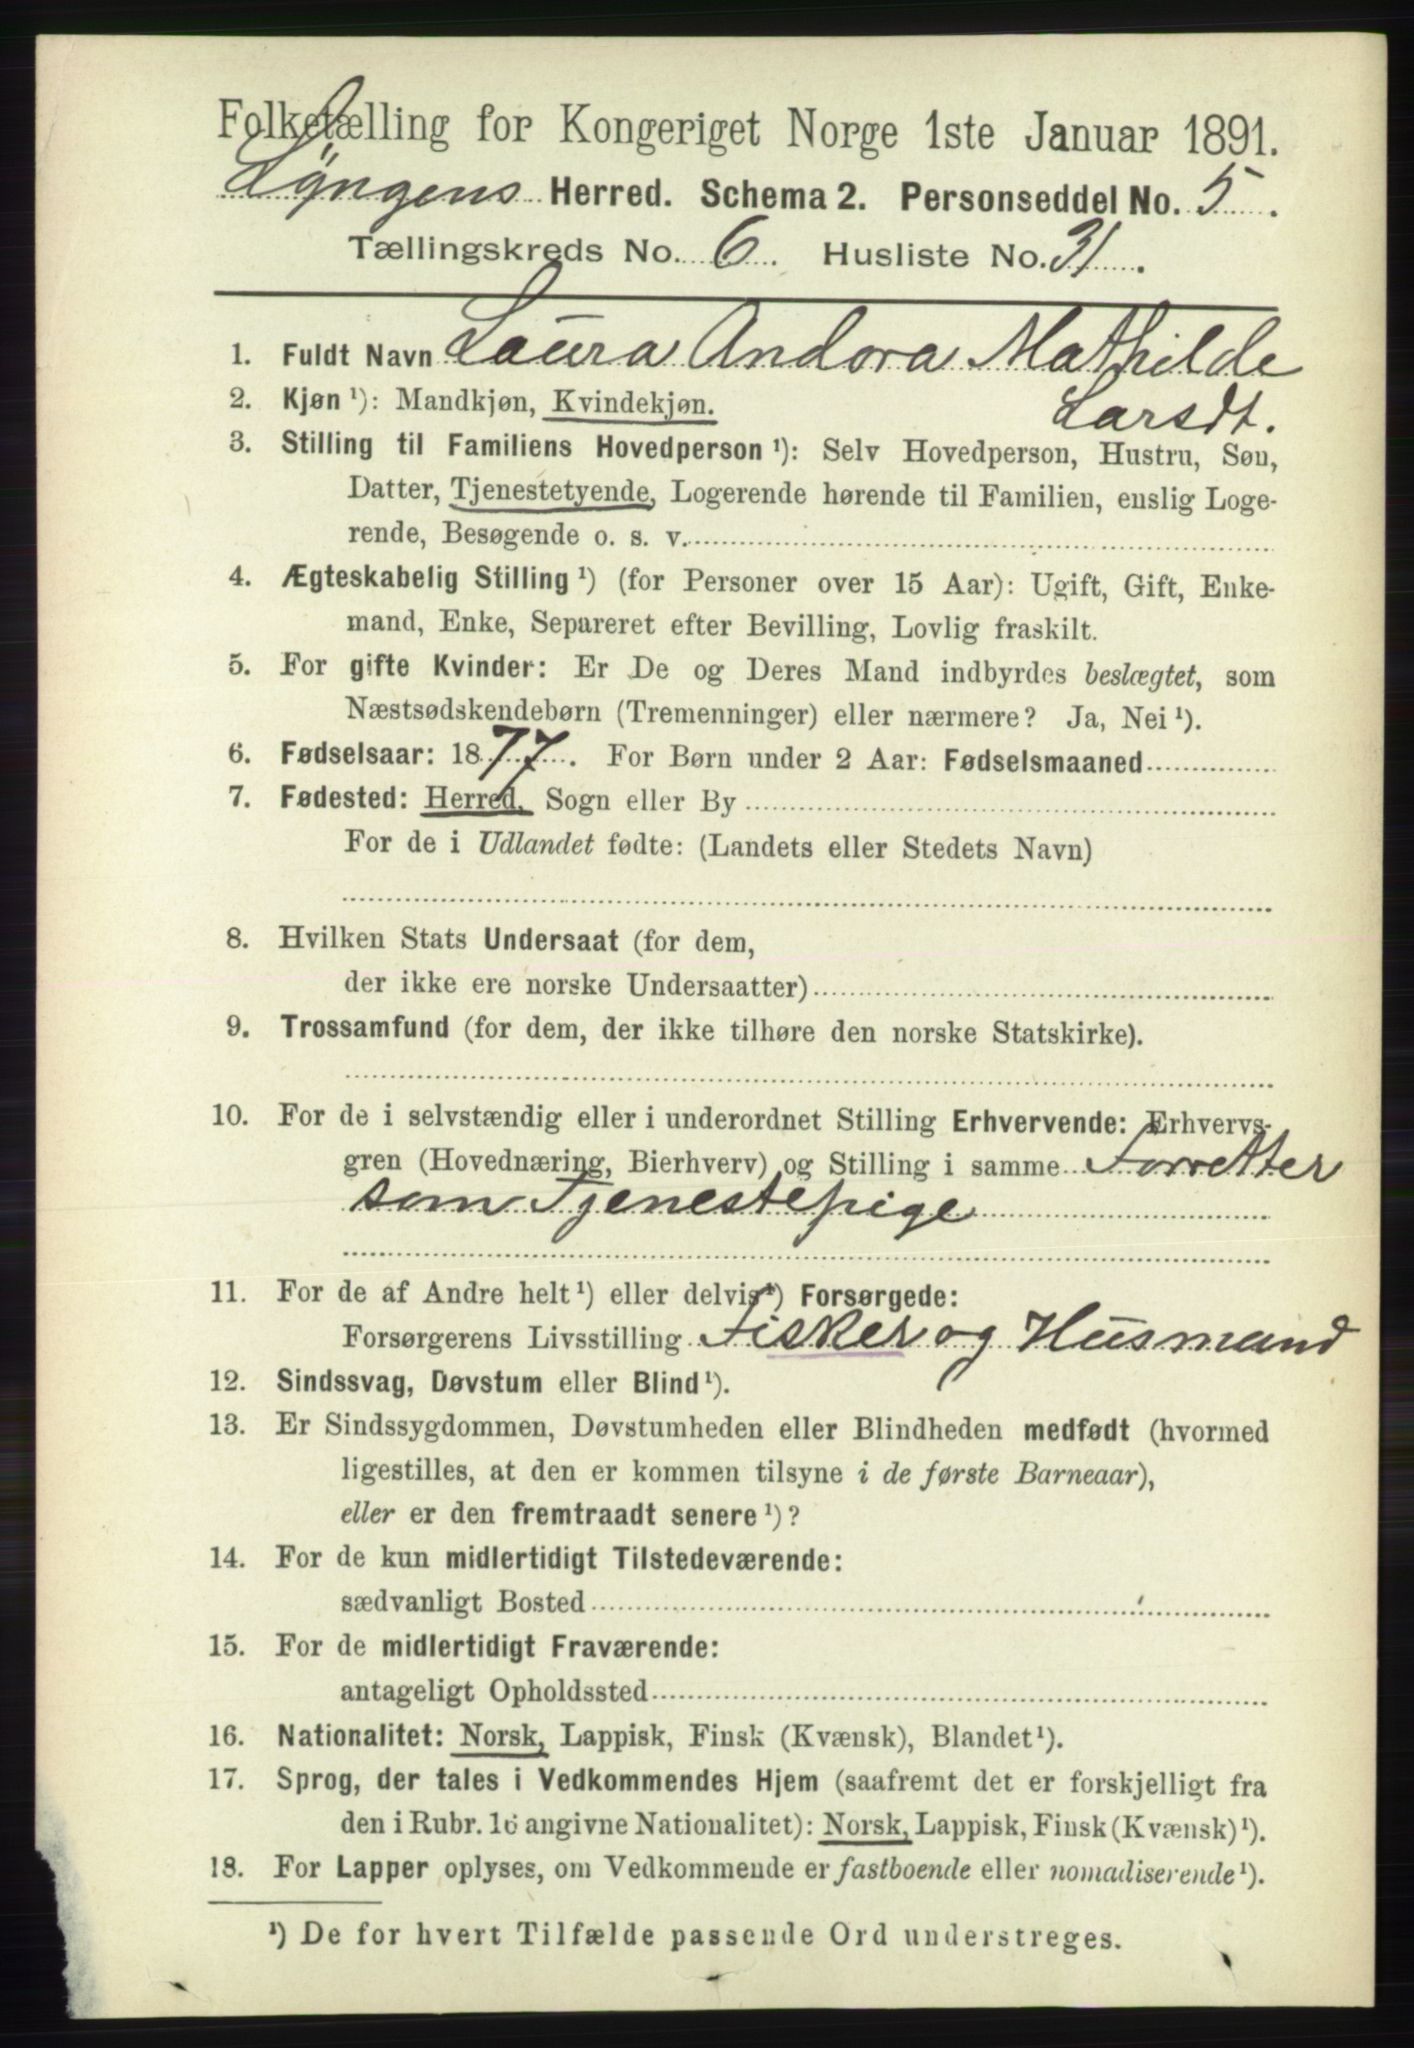 Folketælling for Kongeriget Norge 1ste Januar 1891.
Lyngens Herred. Schema 2. Personseddel No. 5.
Tællingskreds No. 6. Husliste No. 31.
1. Fuldt Navn Laura Andora Mathilde
Larsdt.
2. Kjøn ¹): Mandkjøn, Kvindekjøn.
3. Stilling til Familiens Hovedperson ¹): Selv Hovedperson, Hustru, Søn,
Datter, Tjenestetyende, Logerende hørende til Familien, enslig Loge-
rende, Besøgende o. s. v.
4. Ægteskabelig Stilling ¹) (for Personer over 15 Aar): Ugift, Gift, Enke-
mand, Enke, Separeret efter Bevilling, Lovlig fraskilt.
5. For gifte Kvinder: Er De og Deres Mand indbyrdes beslægtet, som
Næstsødskendebørn (Tremenninger) eller nærmere? Ja, Nei ¹).
6. Fødselsaar: 1877. For Børn under 2 Aar: Fødselsmaaned
7. Fødested: Herred, Sogn eller By
For de i Udlandet fødte: (Landets eller Stedets Navn)
8. Hvilken Stats Undersaat (for dem,
der ikke ere norske Undersaatter)
9. Trossamfund (for dem, der ikke tilhøre den norske Statskirke).
10. For de i selvstændig eller i underordnet Stilling Erhvervende: Erhvervs-
gren (Hovednæring, Bierhverv) og Stilling i samme Forretter
som Tjenestepige
11. For de af Andre helt ¹) eller delvis ¹) Forsørgede:
Forsørgerens Livsstilling Fisker og Husmand
12. Sindssvag, Døvstum eller Blind ¹).
13. Er Sindssygdommen, Døvstumheden eller Blindheden medfødt (hvormed
ligestilles, at den er kommen tilsyne i de første Barneaar),
eller er den fremtraadt senere ¹)?
14. For de kun midlertidigt Tilstedeværende:
sædvanligt Bosted
15. For de midlertidigt Fraværende:
antageligt Opholdssted
16. Nationalitet: Norsk, Lappisk, Finsk (Kvænsk), Blandet ¹).
17. Sprog, der tales i Vedkommendes Hjem (saafremt det er forskjelligt fra
den i Rubr. 16 angivne Nationalitet): Norsk, Lappisk, Finsk (Kvænsk) ¹).
18. For Lapper oplyses, om Vedkommende er fastboende eller nomadiserende ¹).
¹) De for hvert Tilfælde passende Ord understreges.